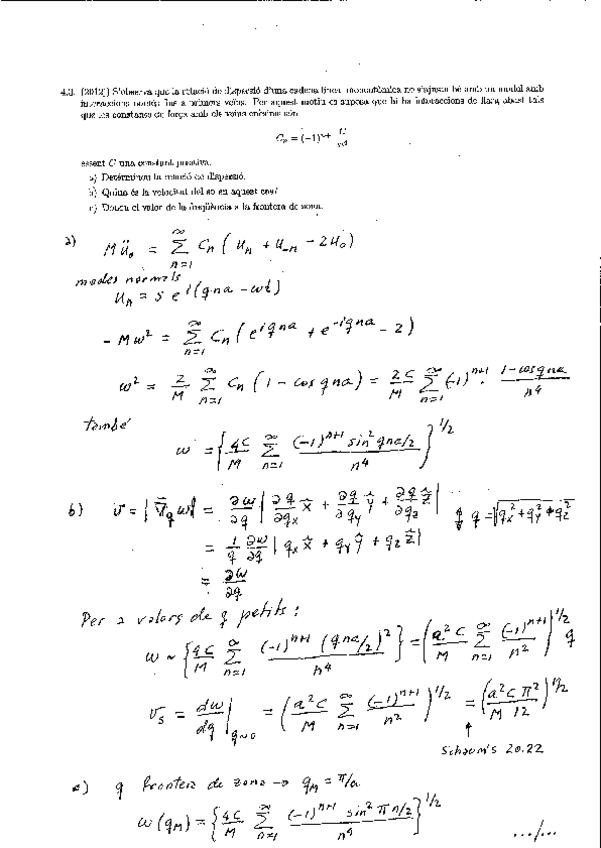 4.3. (2012j) S'observa que la relació de dispersió d'una cadena lineal monoatòmica no s'ajusta bé amb un model amb
interaccions només fins a primers veïns. Per aquest motiu es suposa que hi ha interaccions de llarg abast tals
que les constants de força amb els veïns enèsims són
Cₙ = (-1)ⁿ⁺¹ C/n⁴
essent C una constant positiva.
a) Determineu la relació de dispersió.
b) Quina és la velocitat del so en aquest cas?
c) Doneu el valor de la freqüència a la frontera de zona.
a) M ü₀ = Σ_{n=1}^{∞} Cₙ (uₙ + u₋ₙ - 2u₀)
modes normals
uₙ = s e^{i(qna - ωt)}
- Mω² = Σ_{n=1}^{∞} Cₙ (e^{iqna} + e^{-iqna} - 2)
ω² = 2/M Σ_{n=1}^{∞} Cₙ (1 - cos qna) = 2C/M Σ_{n=1}^{∞} (-1)^{n+1} · (1 - cos qna)/n⁴
també
ω = {4C/M Σ_{n=1}^{∞} (-1)^{n+1} sin² qna/2 / n⁴}^{1/2}
b) v = |∇⃗_q ω| = ∂ω/∂q | ∂q/∂q_x x̂ + ∂q/∂q_y ŷ + ∂q/∂q_z ẑ | q = √(q_x² + q_y² + q_z²)
= 1/q ∂ω/∂q | q_x x̂ + q_y ŷ + q_z ẑ |
= ∂ω/∂q
Per a valors de q petits:
ω ~ {4C/M Σ_{n=1}^{∞} (-1)^{n+1} (qna/2)² / n⁴} = (a²C/M Σ_{n=1}^{∞} (-1)^{n+1}/n²)^{1/2} q
v_s = dω/dq |_{q~0} = (a²C/M Σ_{n=1}^{∞} (-1)^{n+1}/n²)^{1/2} = (a²Cπ²/M 12)^{1/2}
↑
Schaum's 20.22
c) q frontera de zona → q_M = π/a
ω(q_M) = {4C/M Σ_{n=1}^{∞} (-1)^{n+1} sin² πn/2 / n⁴}^{1/2}
.../...